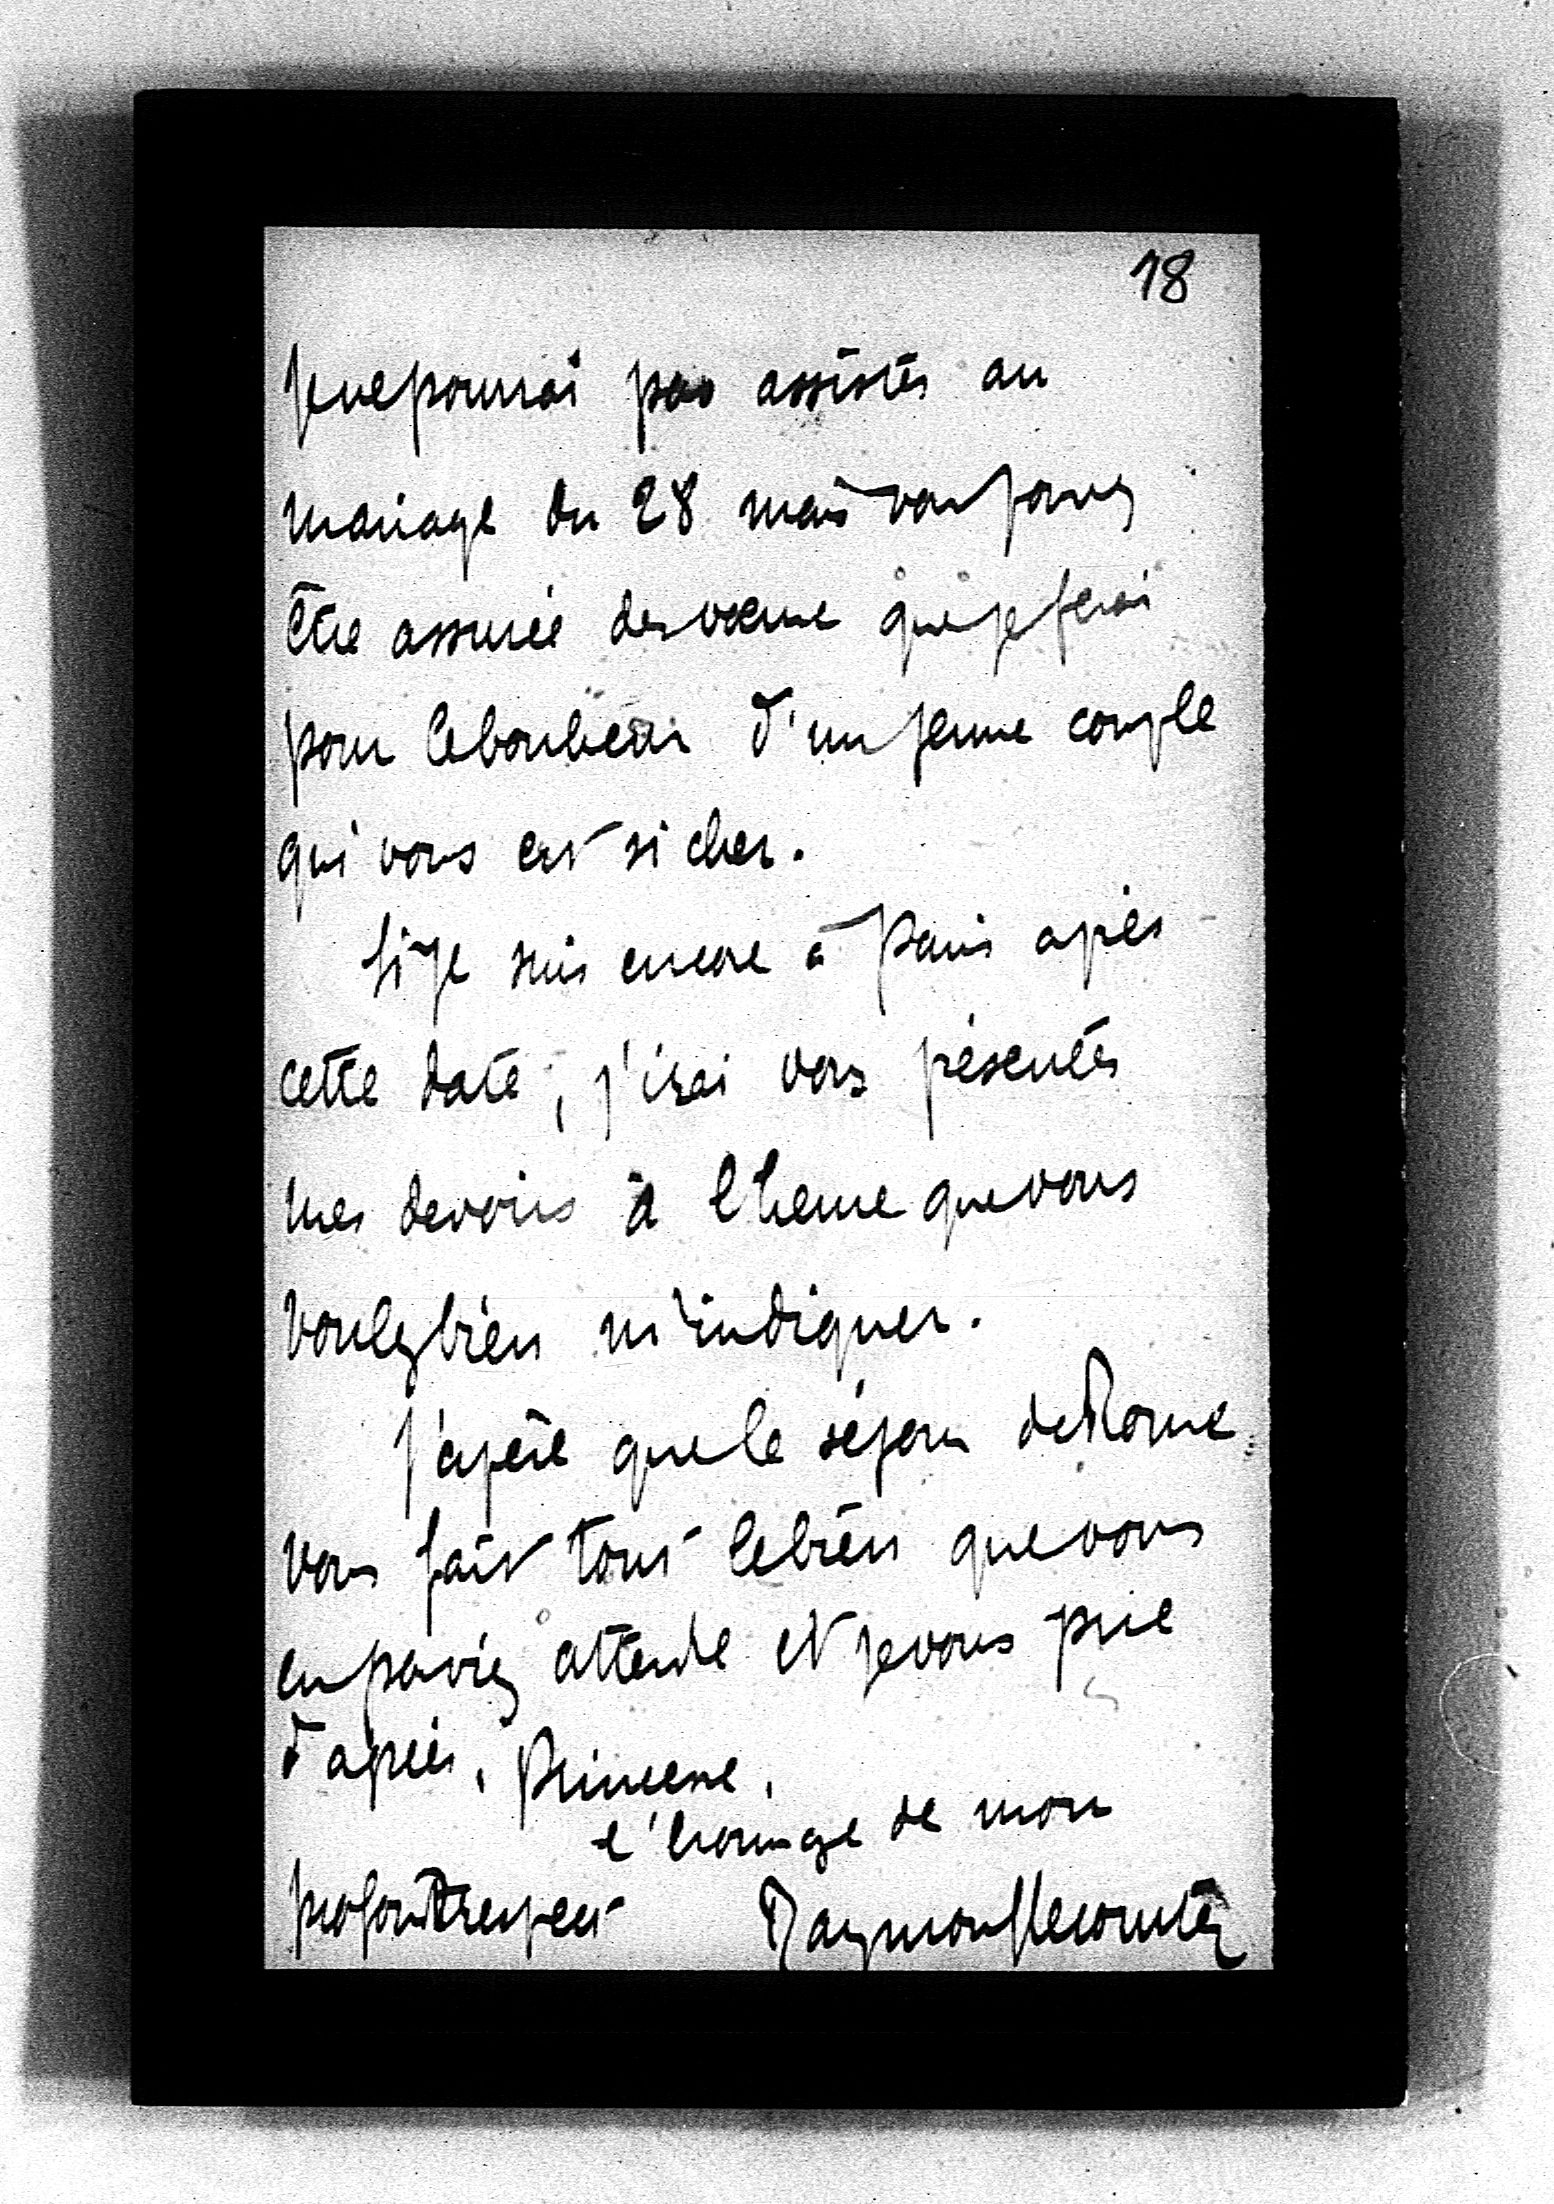 18
Je ne pourrai pas assister au
mariage du 28 mais vous pouvez
être assurée des vœux que je ferai
pour le bonheur d'un jeune couple
qui vous est si cher.
Si je suis encore à Paris après
cette date, j'irai vous présenter
mes devoirs à l'heure que vous
voulez bien m'indiquer.
J'espère que le séjour de Rome
vous fait tout le bien que vous
en pouviez attendre et je vous prie
d'agréer, Princesse,
l'homage de mon
profond respect Raymond Lecomte